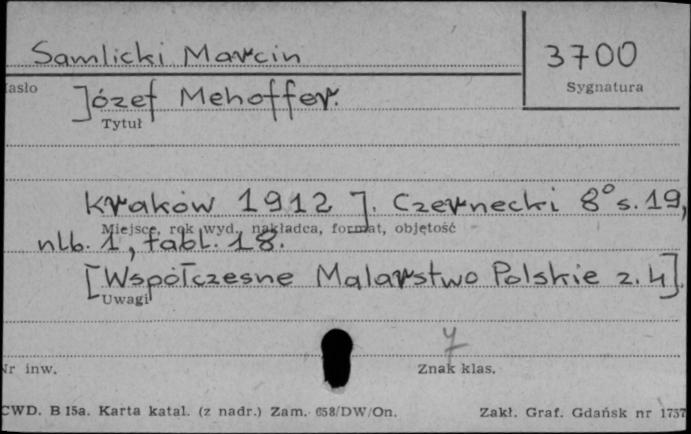 Samlicki Marcin
3700
Sygnatura
asło
Józef Mehoffer.
Tytuł
Kraków 1912 J. Czernecki 8° s. 19,
Miejsce, rok wyd., nakładca, format, objętość
nlb. 1, tabl. 18.
[Współczesne Malarstwo Polskie z. 4].
Uwagi
Nr inw.
7
Znak klas.
CWD. B 15a. Karta katal. (z nadr.) Zam. 658/DW/On.
Zakł. Graf. Gdańsk nr 1757